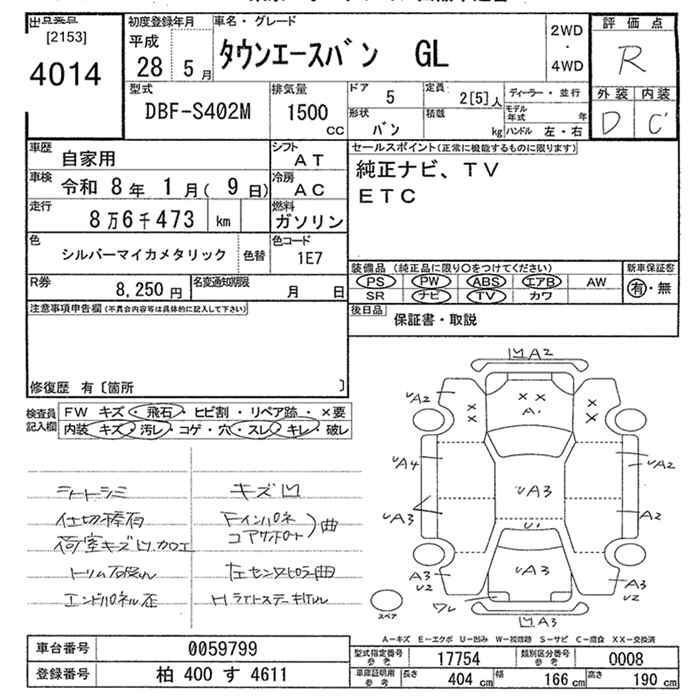 [2153]
4014
初度登録年月
平成
28 5月
車名・グレード
タウンエースバン GL
2WD
・
4WD
評価点
R
外装 内装
D C
型式
DBF-S402M
排気量
1500
CC
ドア
5
定員
2[5]人
ディーラー・並行
形状
バン
積載
kg
モデル年式 年
ハンドル 左・右
車歴
自家用
シフト
AT
車検
令和 8年 1月( 9日)
冷房
AC
走行
8万6千473 km
燃料
ガソリン
色
シルバーマイカメタリック
色替
色コード
1E7
R券
8,250円
名変通知期限
月 日
セールスポイント(正常に機能するものに限ります)
純正ナビ、TV
ETC
装備品(純正品に限り〇をつけてください)
新車保証書
PS PW ABS エアB AW
有・無
SR ナビ TV カワ
後日品
保証書・取説
注意事項申告欄(不具合内容等は具体的に記入して下さい)
修復歴 有〔箇所 〕
検査員記入欄
FW キズ・飛石・ヒビ割・リペア跡・×要
内装 キズ・汚レ・コゲ・穴・スレ・キレ・破レ
シートシミ
荷室キズ凹カロエ
エンドパネル歪
キズ凹
曲
凹A2
A2
× ×
× ×
× ×
A1
A4
A2
A3
A3
A2
U1
A3
A3
U2
A3
U2
ワレ
凹A3
スペア
A-キズ E-エクボ U-凹み W-波 S-サビ C-腐食 XX-交換済
車台番号
0059799
登録番号
柏 400 す 4611
型式指定番号
参考
17754
類別区分番号
参考
0008
車庫証明用
参考
長さ
404 cm
幅
166 cm
高さ
190 cm